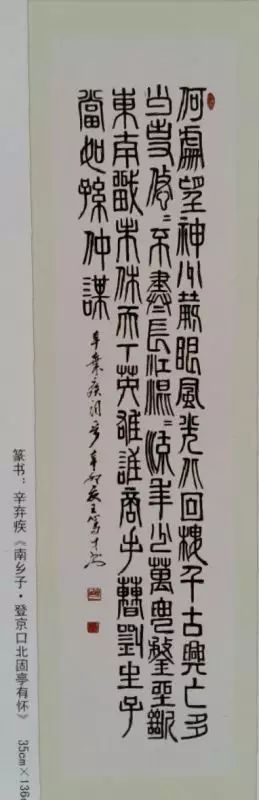 何處望神州滿眼風光北固樓千古興亡多
少事悠〻不盡長江滾〻流年少萬兜鍪坐斷
東南戰未休天下英雄誰敵手曹劉生子
當如孫仲謀
辛棄疾詞 辛卯夏王篤才書
篆书：辛弃疾《南乡子·登京口北固亭有怀》
35cm×136c